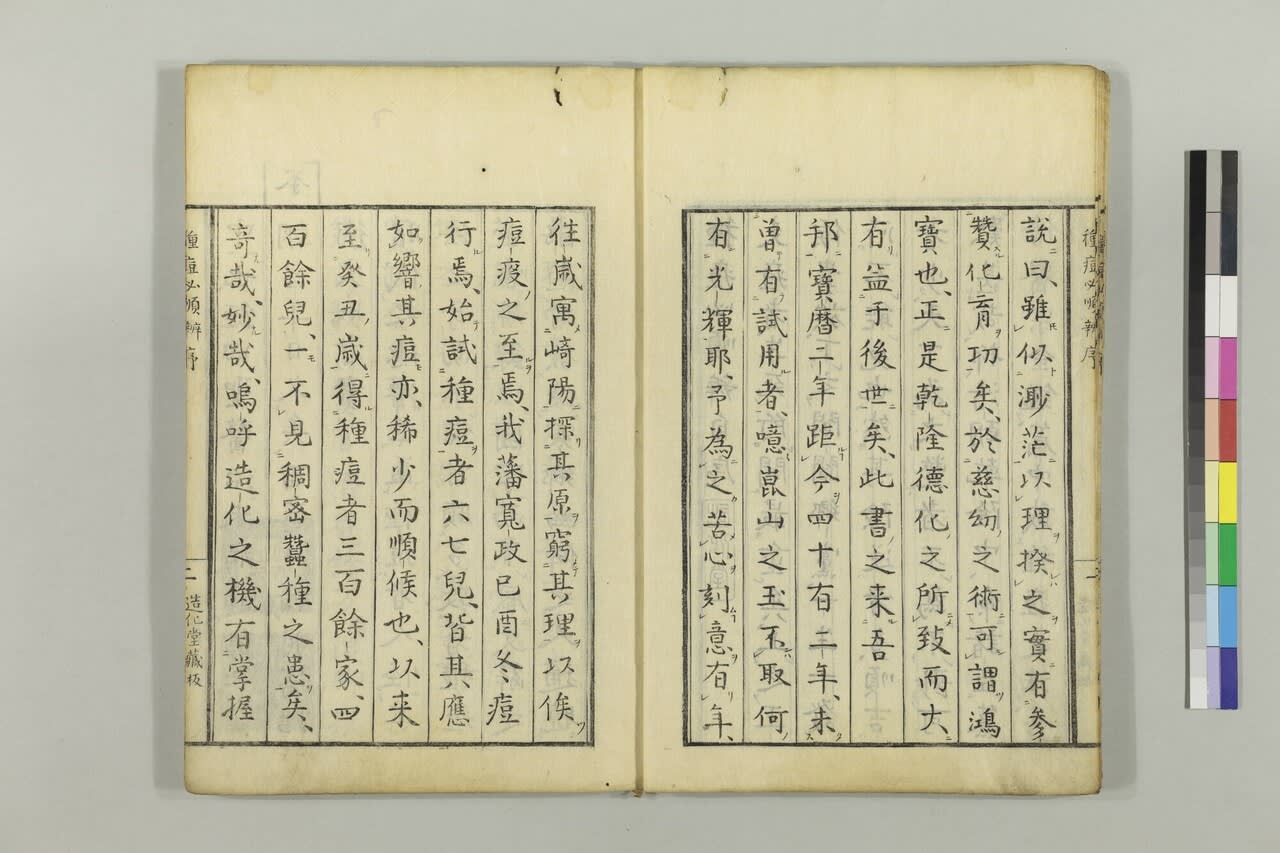 說曰、雖似渺茫以理揆之實有參
贊化育功矣、於慈幼之術可謂鴻
寶也、正是乾隆德化之所致而大、
有益于後世矣、此書之来吾
邦寶暦二年距今四十有二年、未
曽有試用者、噫崑山之玉不取何
有光輝耶、予為之苦心刻意有年、
種痘必順辨序
往歲寓﨑陽探其原窮其理以俟
痘疫之至焉、我藩寬政已酉冬痘
行焉、始試種痘者六七兒、皆其應
如響其痘亦稀少而順候也、以来
至癸丑歲得種痘者三百餘家、四
百餘兒、一不見稠密蠶種之患矣、
竒哉、妙哉、嗚呼造化之機有掌握
種痘必順辨序
二
造化堂藏板